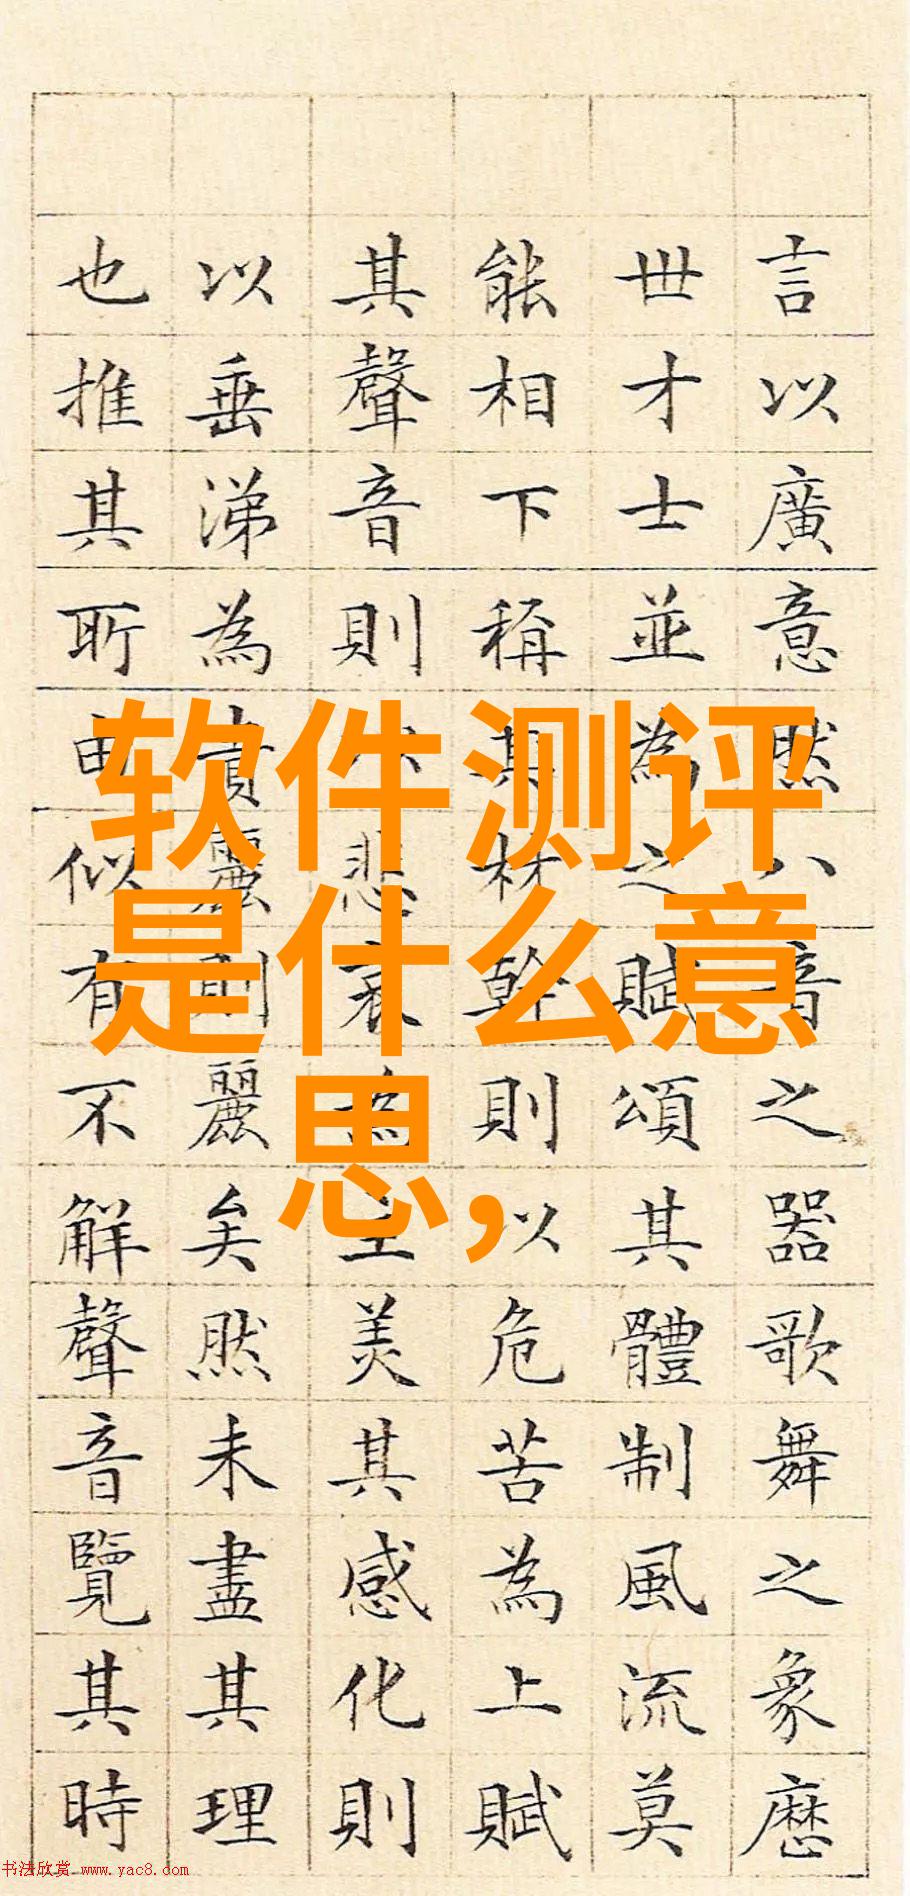 言以廣意然八音之器歌舞之象歷
世才士並為之賦頌其體制風流莫
能相下稱其材幹則以危苦為上賦
其聲音則以悲哀為主美其感化則
以垂涕為貴麗則麗矣然未盡其理
也推其所由似有不解聲音覽其時
软件测评
是什么意
思,
书法欣赏 www.yac8.com